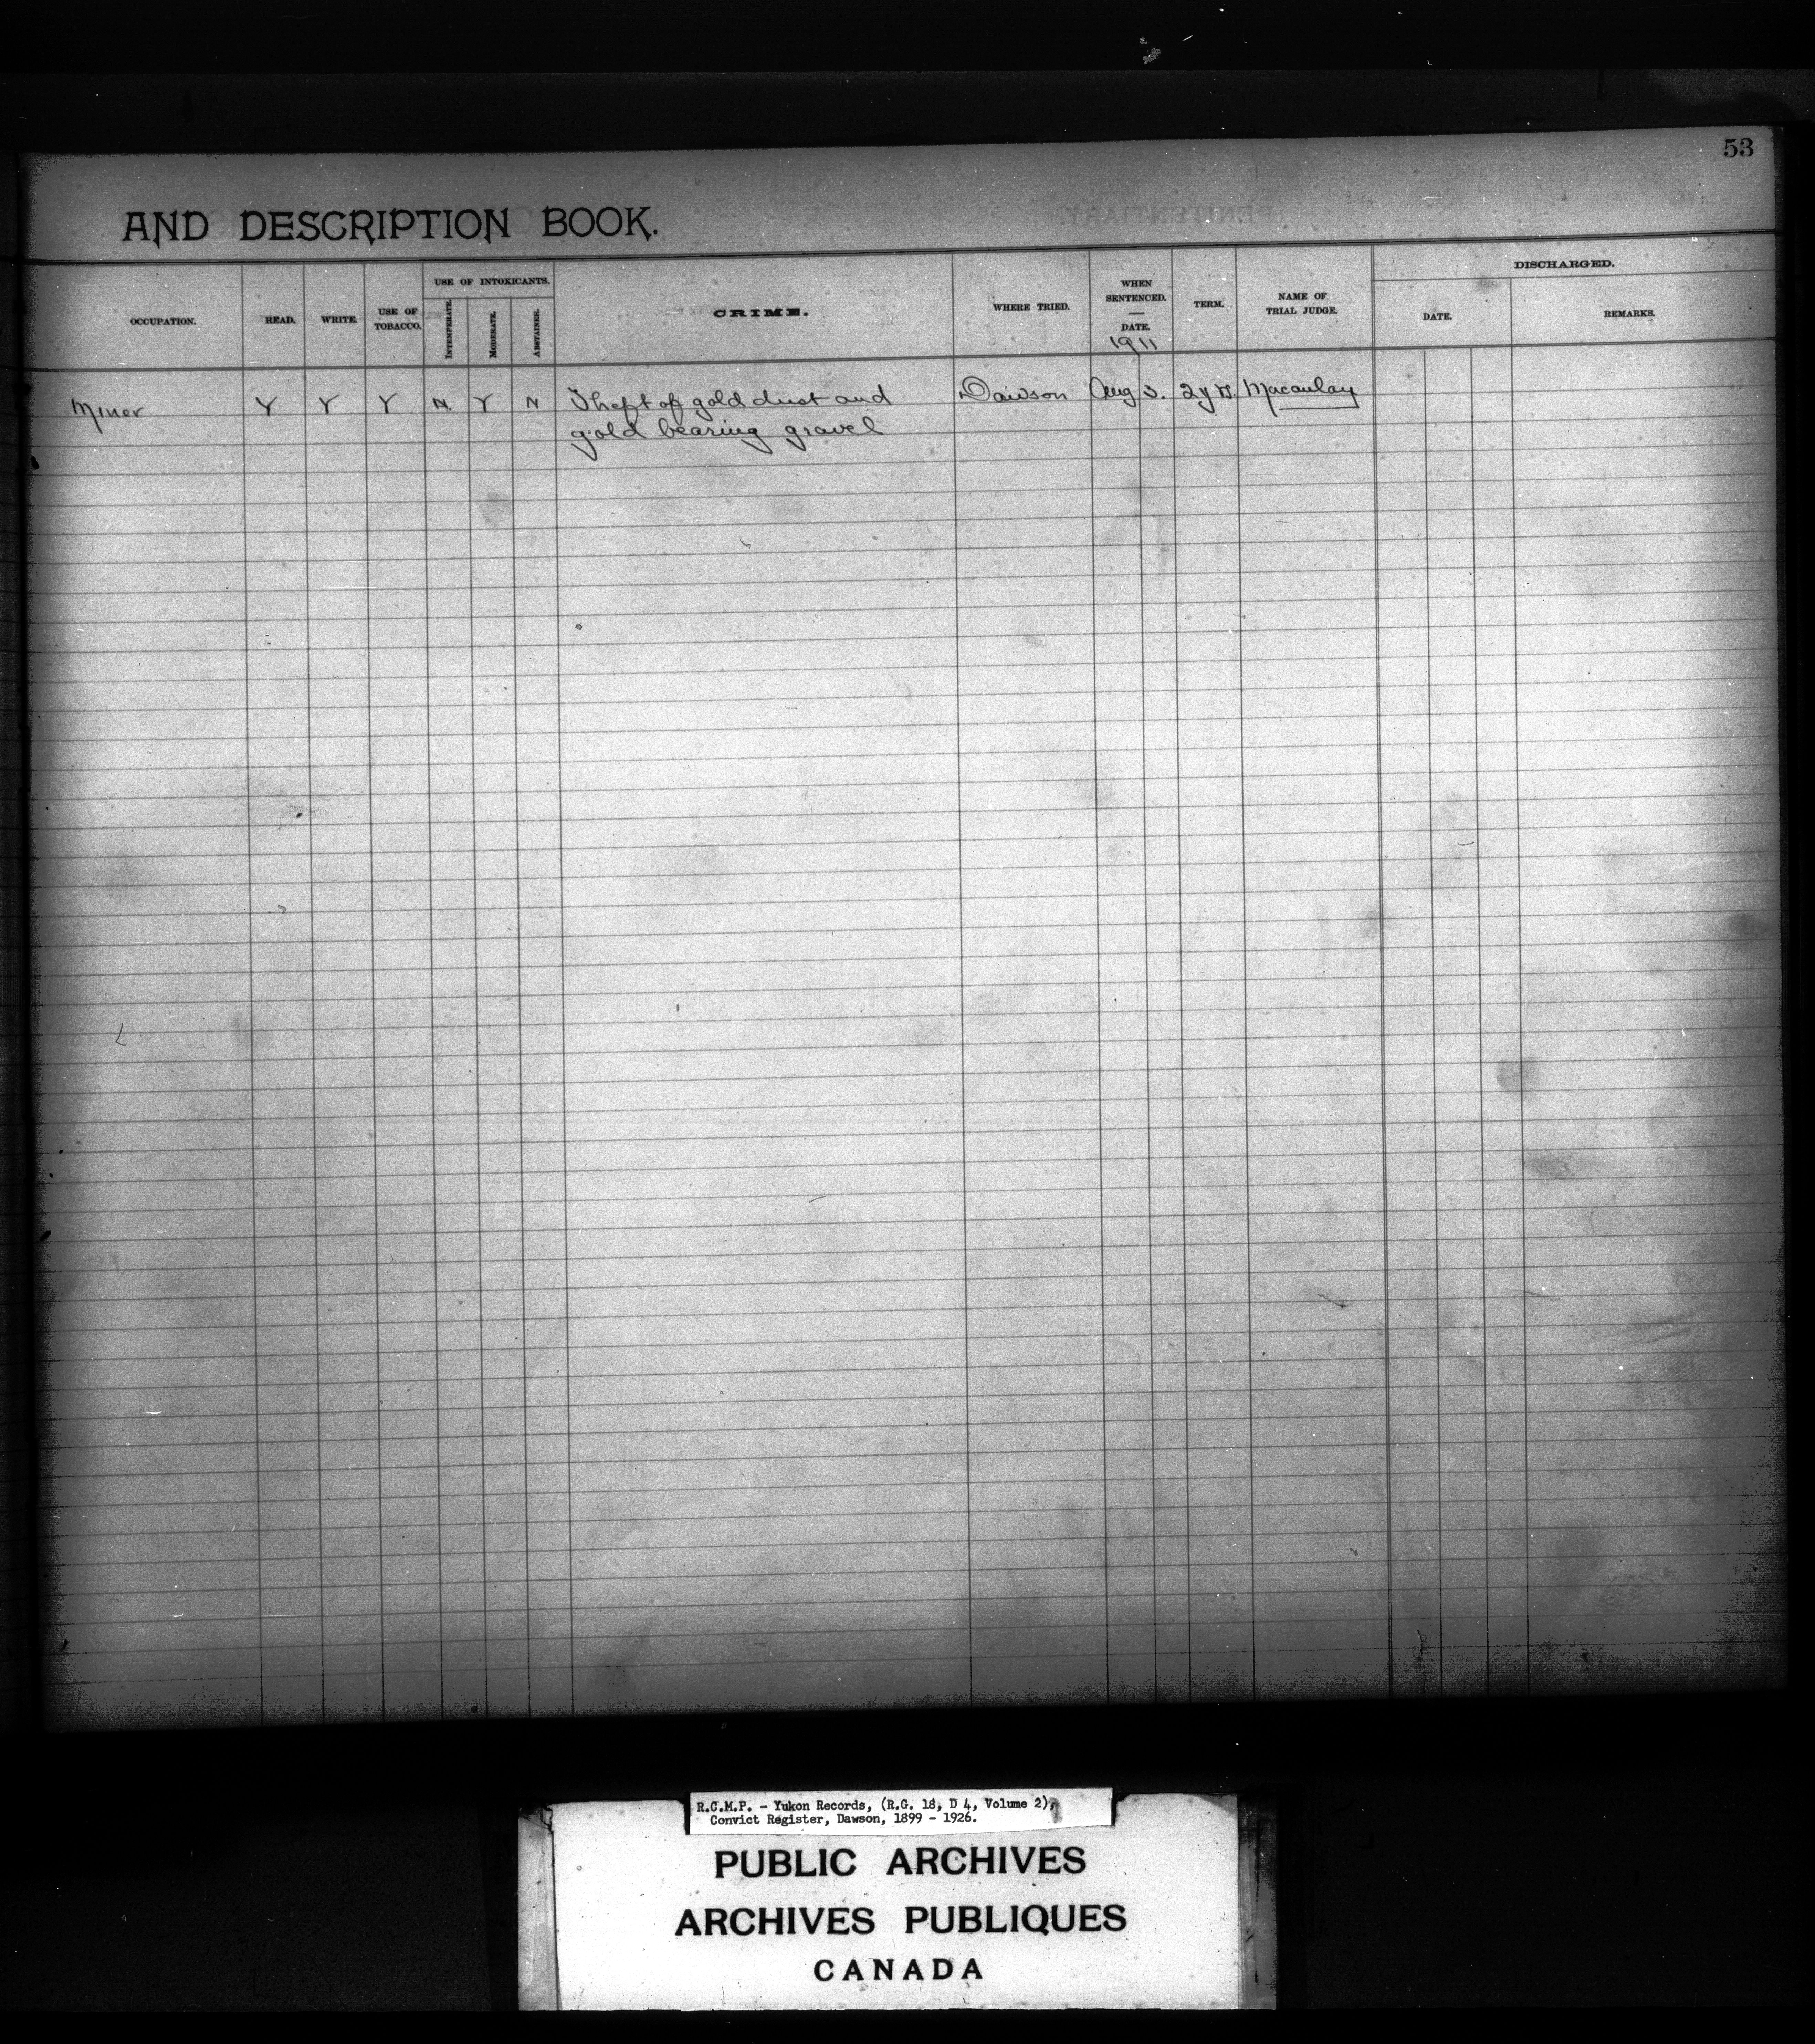 53
AND DESCRIPTION BOOK.
OCCUPATION.
READ.
WRITE.
USE OF
TOBACCO.
USE OF INTOXICANTS.
INTEMPERATE.
MODERATE.
ABSTAINER.
CRIME.
WHERE TRIED.
WHEN
SENTENCED.
DATE.
1911
TERM.
NAME OF
TRIAL JUDGE.
DISCHARGED.
DATE.
REMARKS.
Miner Y Y Y N. Y N Theft of gold dust and Dawson Aug 3. 2 yrs. Macaulay
gold bearing gravel
R.C.M.P. - Yukon Records, (R.G. 18, D 4, Volume 2),
Convict Register, Dawson, 1899 - 1926.
PUBLIC ARCHIVES
ARCHIVES PUBLIQUES
CANADA